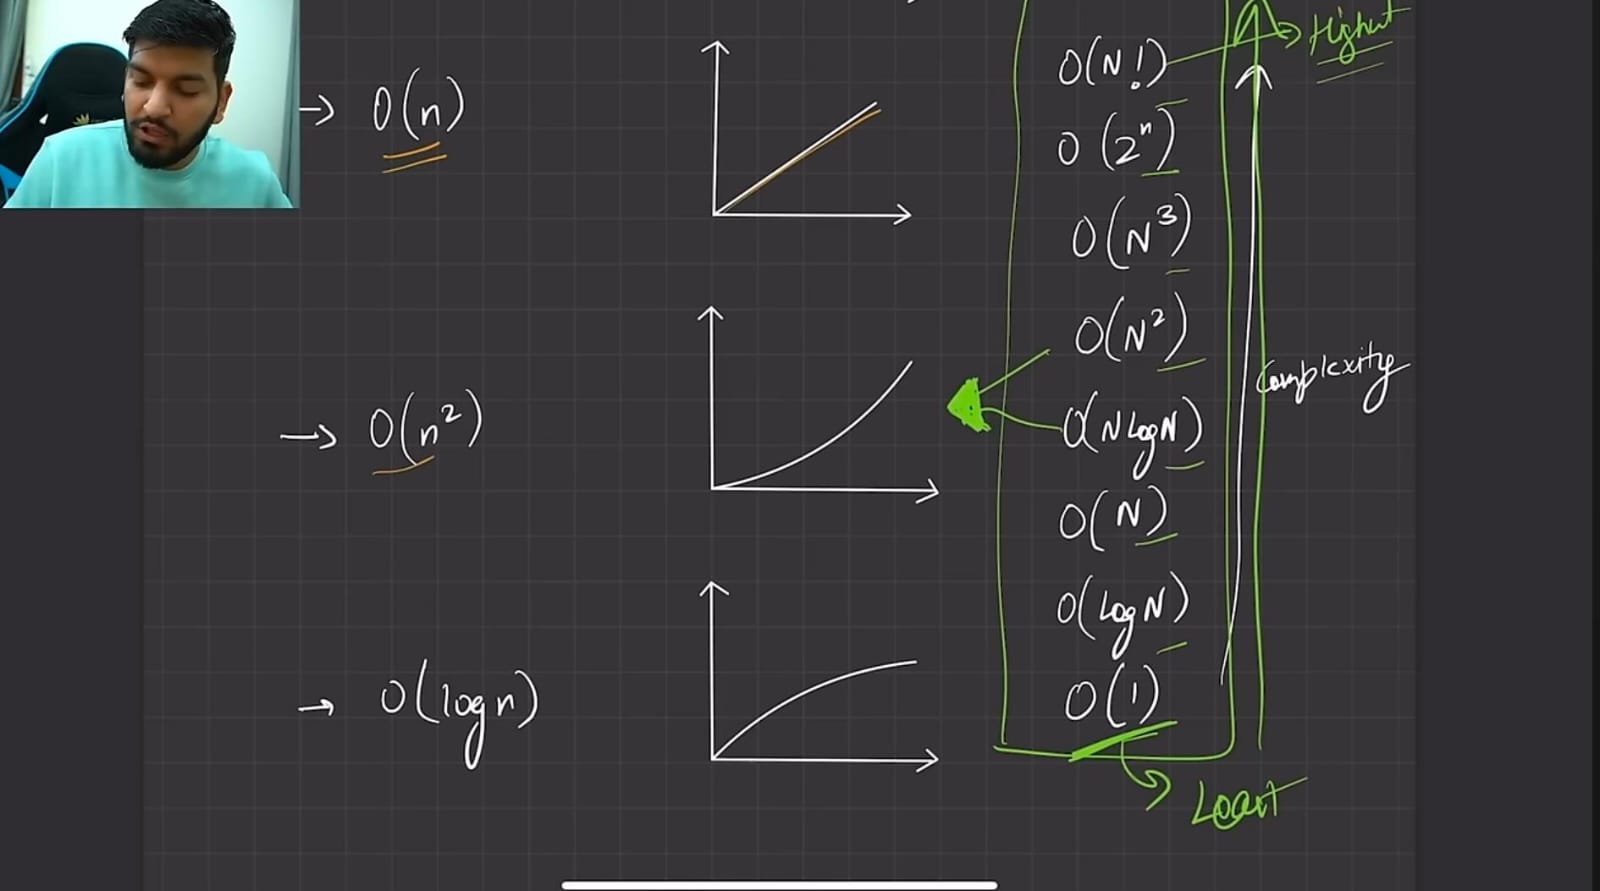 → O(n)
→ O(n²)
→ O(logn)
Highest
O(N!)
O(2ⁿ)
O(N³)
O(N²)
O(NLogN)
O(N)
O(LogN)
O(1)
Complexity
Least